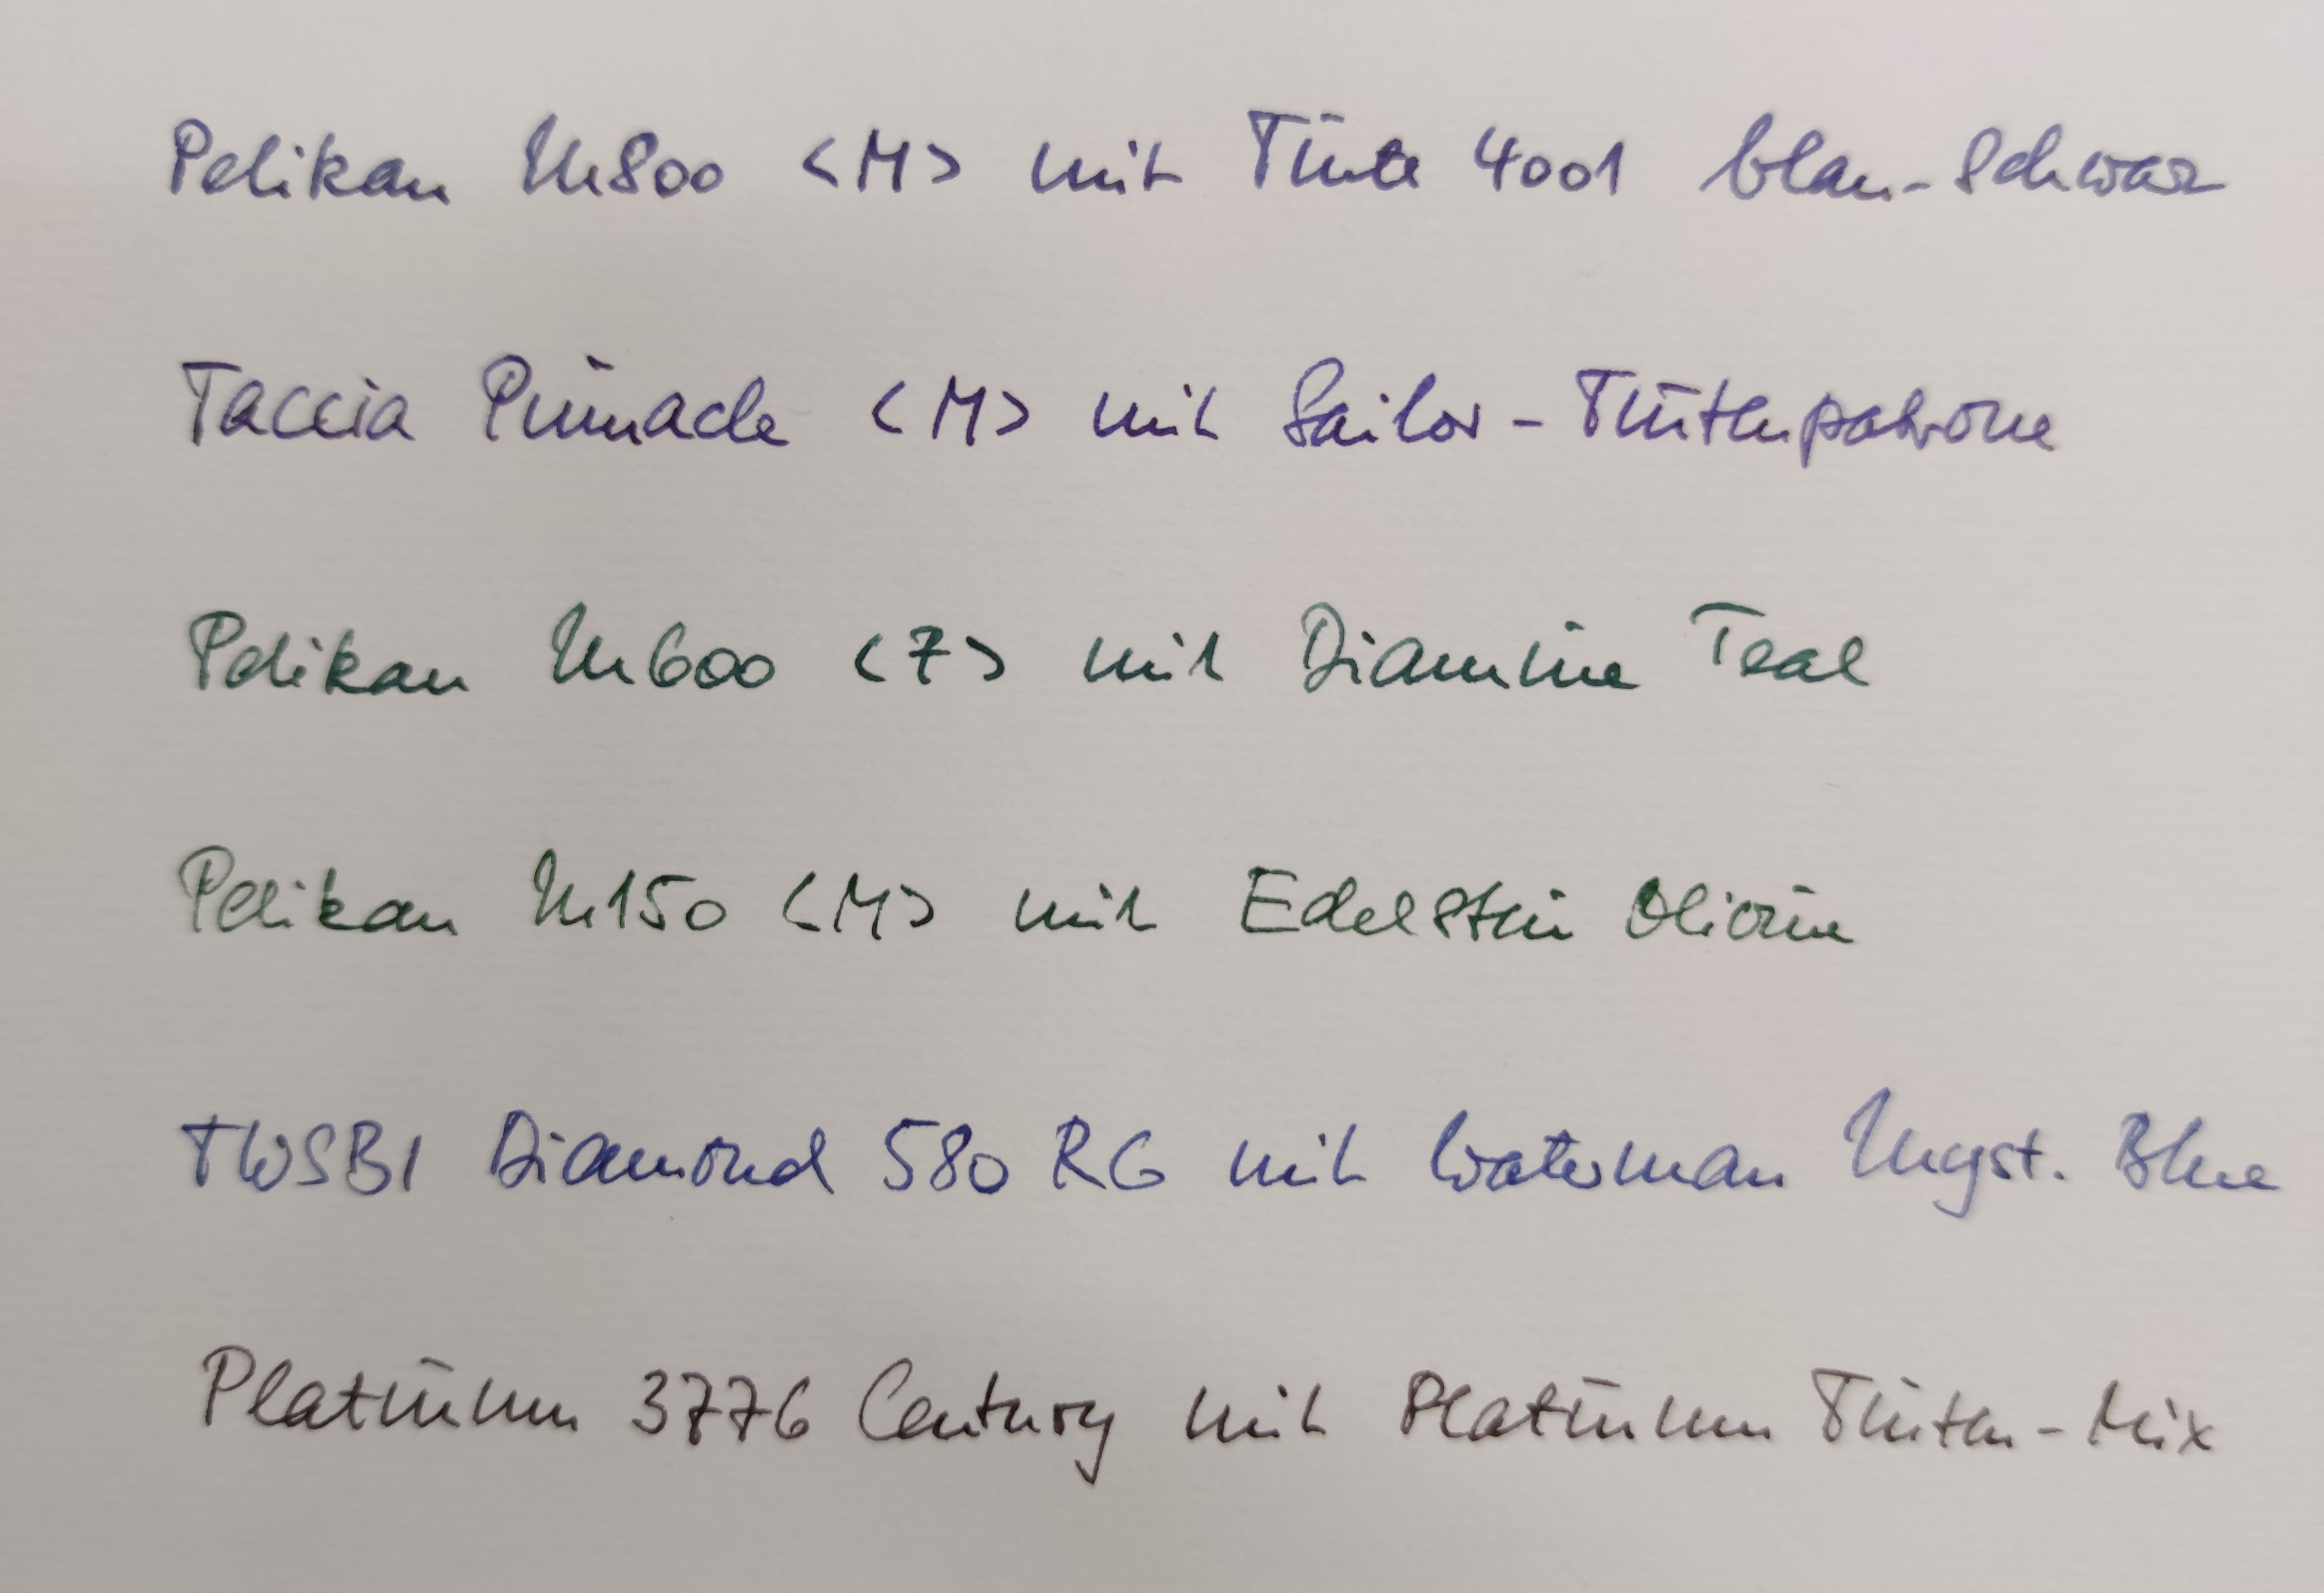 Pelikan M800 <M> mit Tinte 4001 blau-schwarz
Taccia Pinnacle <M> mit Sailor-Tintenpatrone
Pelikan M600 <F> mit Diamine Teal
Pelikan M150 <M> mit Edelstein Olivine
TWSBI Diamond 580 RG mit Waterman Myst. Blue
Platinum 3776 Century mit Platinum Tinten-Mix